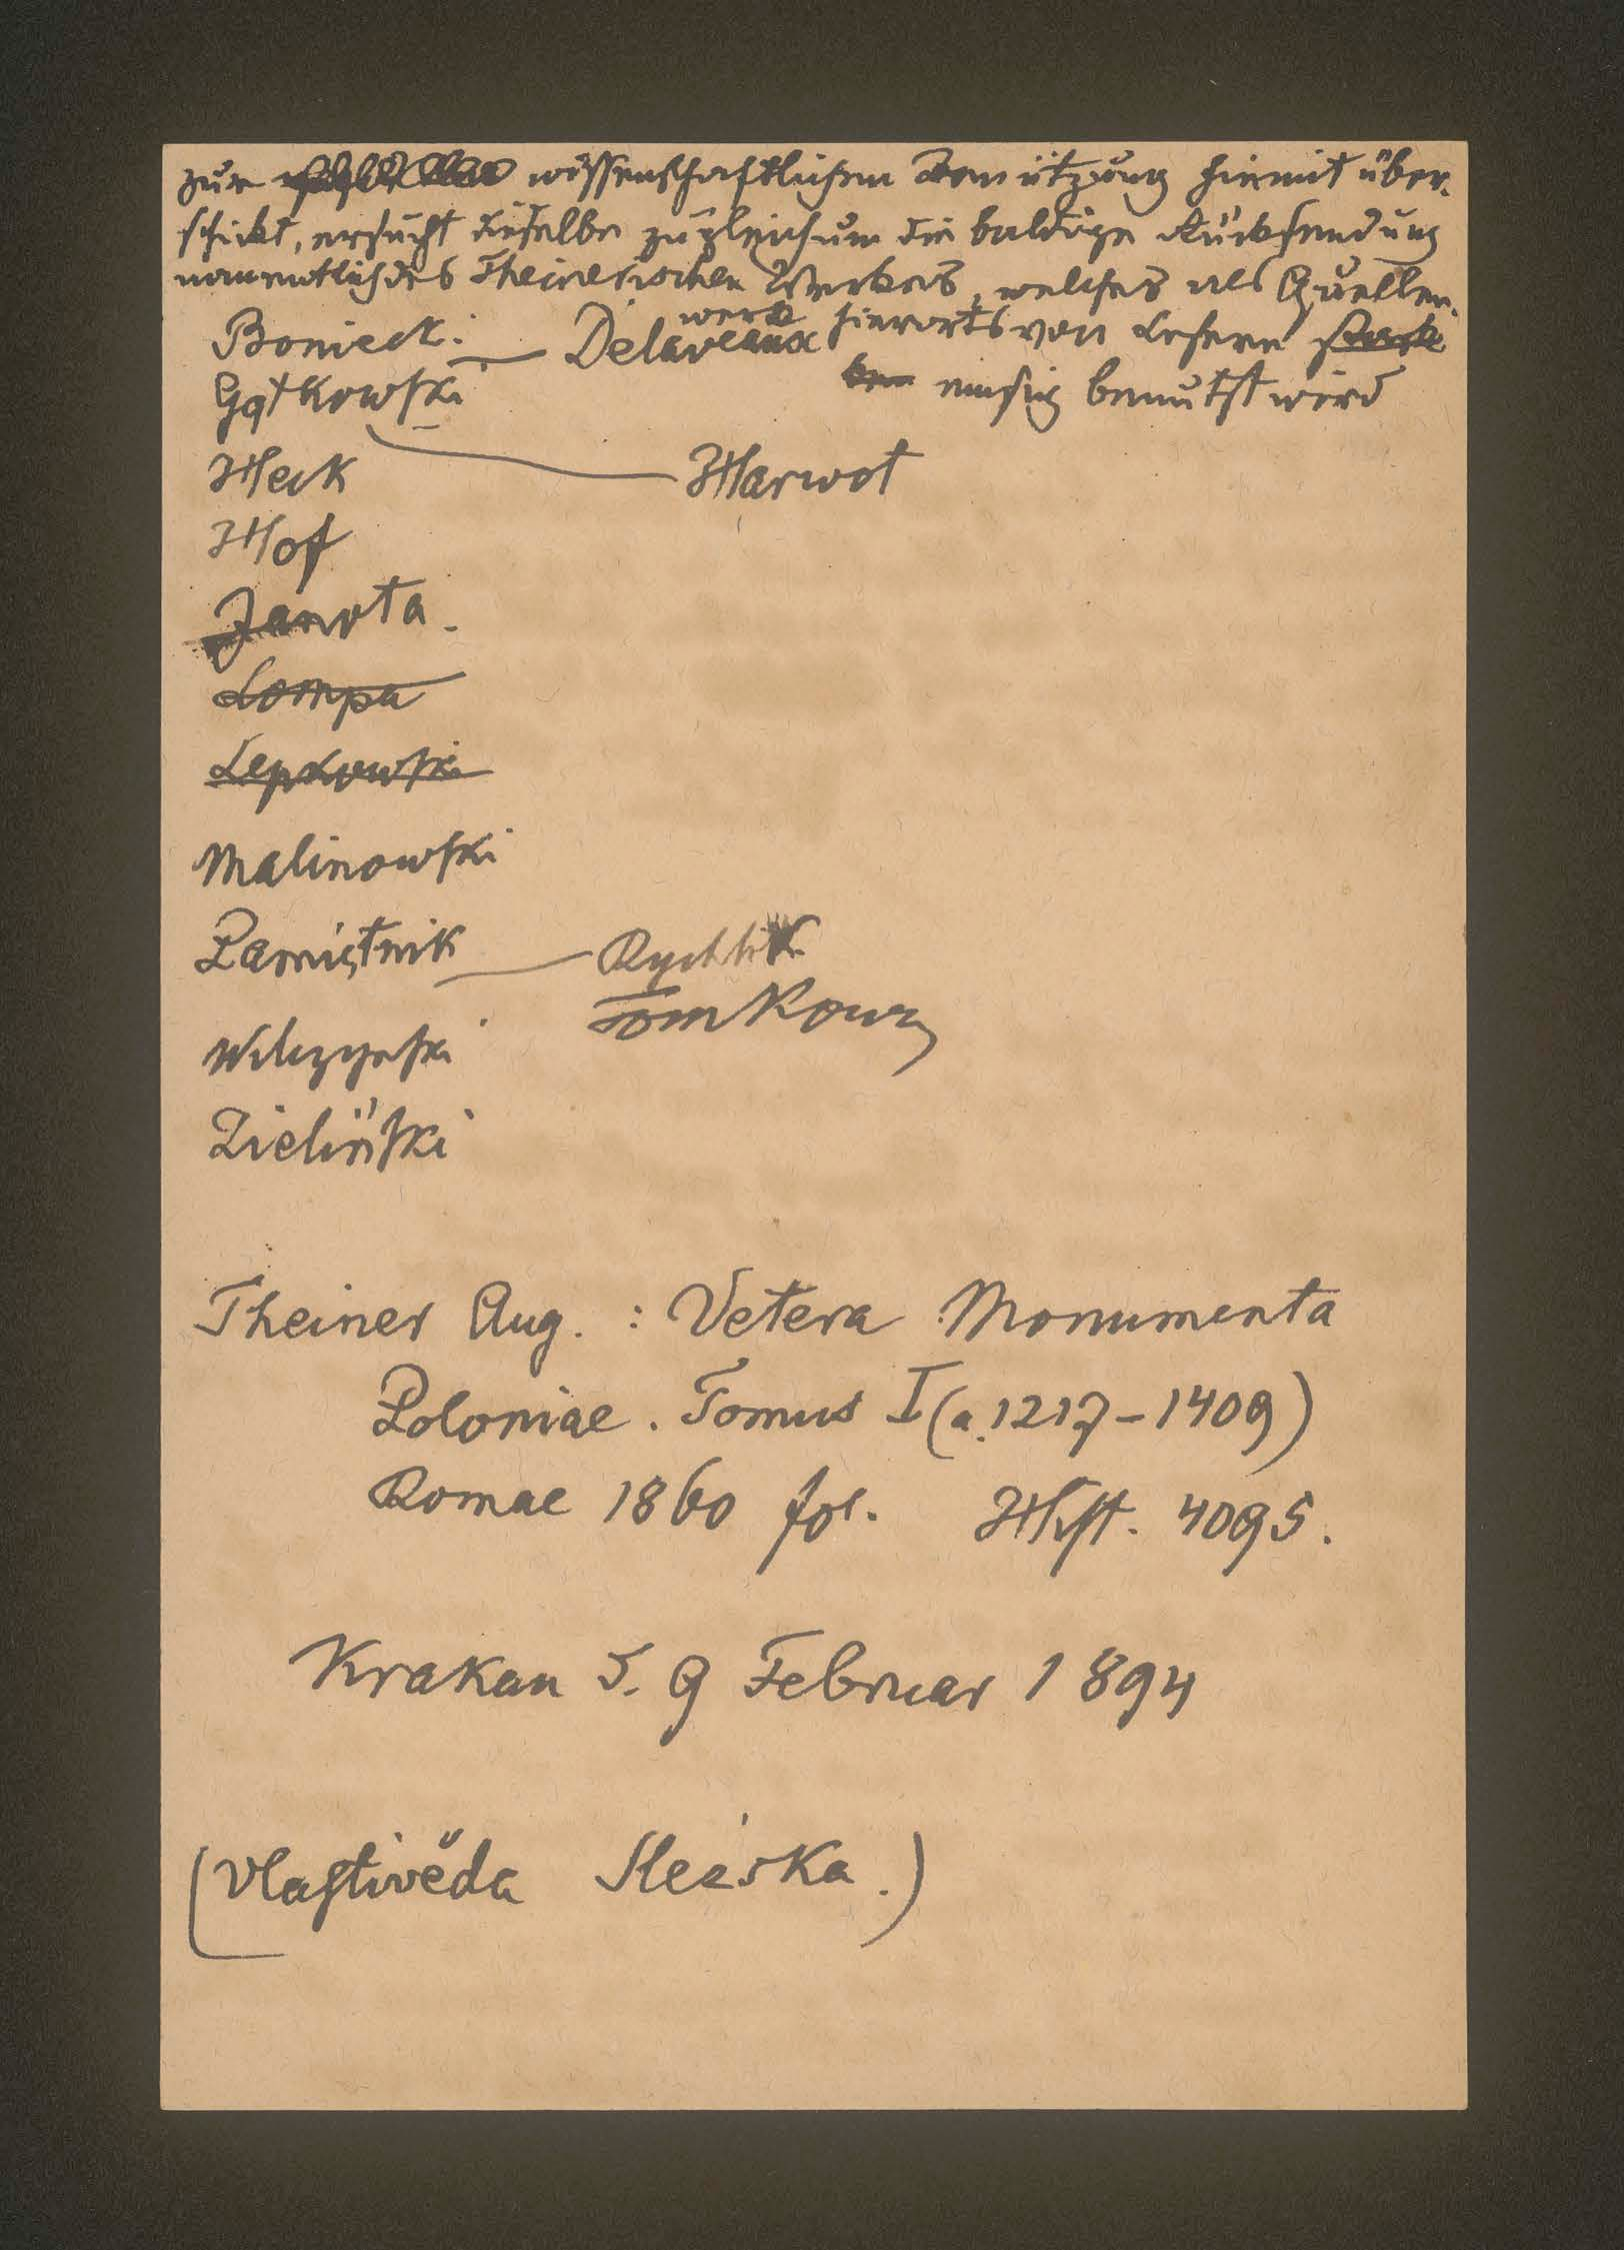 zur wissenschaftlichen Benützung hiemit über-
schickt, ersucht dieselbe zugleich um die baldige Rücksendung
namentlich des Theinerischen Werkes, welches als Quellen-
werk hierorts von Lesern stark
emsig benützt wird
Boniecki — Delaveaux
Gątkowski
Heck — Harwot
Hof
Janota.
Lompa
Lepkowski
Malinowski
Pamiętnik — Rychlik
Tomkowicz
Wilczyński
Zieliński
Theiner Aug. : Vetera Monumenta
Poloniae. Tomus I (a. 1217-1409)
Romae 1860 fol. Hist. 4095.
Krakau d. 9 Februar 1894
(Vlastivěda Slezska.)